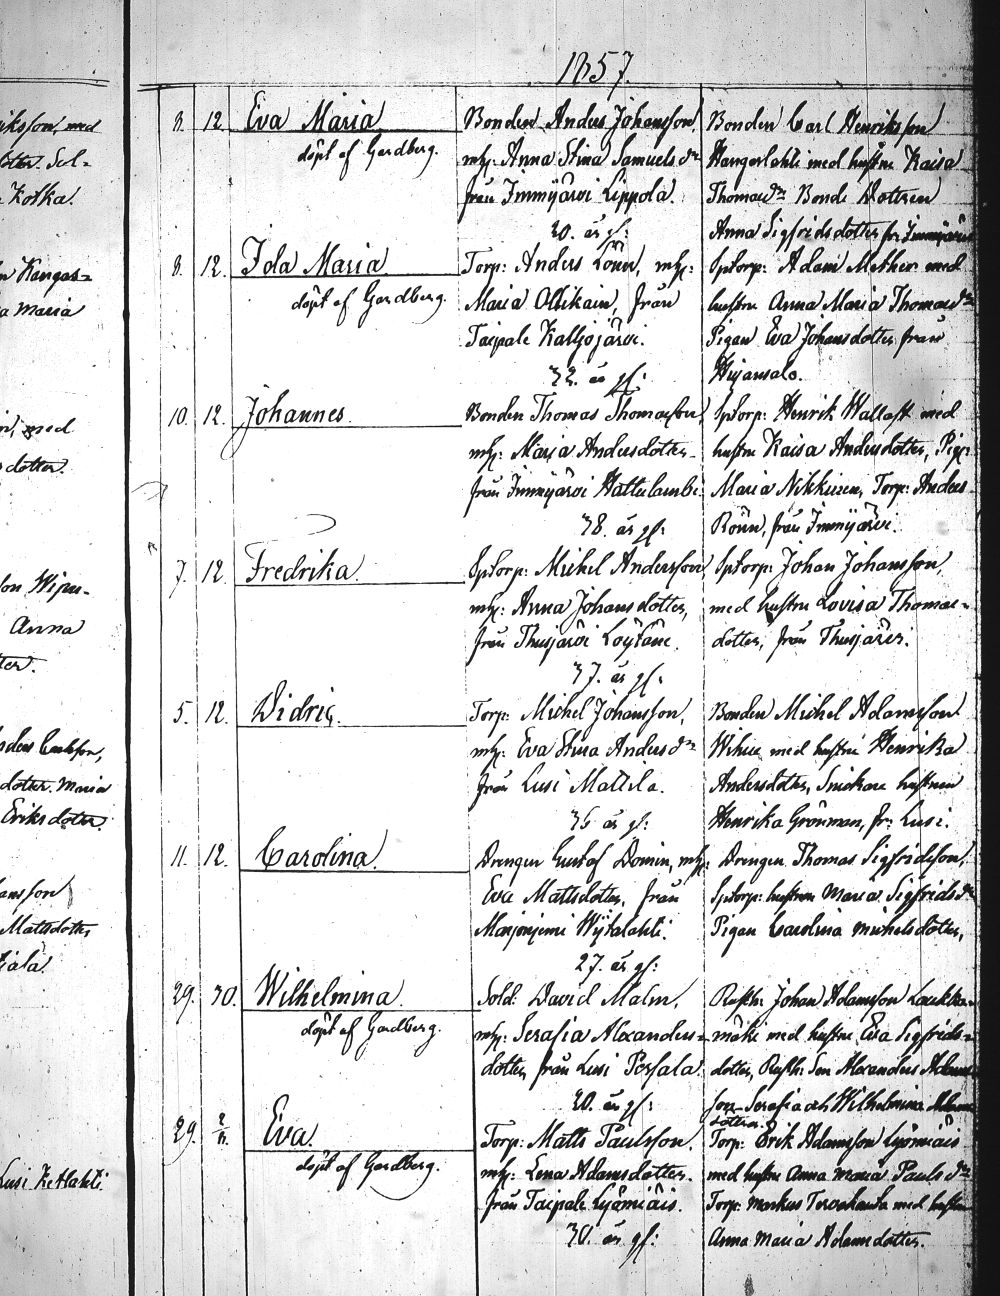 1857.
8. 12. Eva Maria
döpt af Gerdberg.
Bonden Anders Johansson,
mh: Anna Stina Samuels dr
från Immjärvi Lippola.
30. år gl:
Bonden Carl Henriksson
med hustru Kaisa
Thomae dr Bonde Dottren
Anna Sigfridsdotter fr Immjärvi
8. 12. Ida Maria
döpt af Gerdberg.
Torp: Anders Lönn, mh:
Maria Ollikain, från
Taipale Kaljojärvi.
32. år gl:
Sptorp: Adam Mether med
hustru Anna Maria Thomae dr
Pigan Eva Johansdotter från
10. 12. Johannes.
Bonden Thomas Thomasson,
mh: Maria Andersdotter
från Immjärvi Hattulambi
38. år gl:
Sptorp: Henrik Wallast med
hustru Kaisa Andersdotter, Pig:
Maria Nikkinen, Torp: Anders
Rönn, från Immjärvi.
7. 12. Fredrika
Sptorp: Michel Andersson
mh: Anna Johansdotter,
från Thusjärvi Löytäne.
37. år gl:
Sptorp: Johan Johansson,
med hustru Lovisa Thomae-
dotter, från Thusjärvi.
5. 12. Didric.
Torp: Michel Johansson,
mh: Eva Stina Anders dr
från Lusi Mattila.
36 år gl:
Bonden Michel Adamsson
med hustru Henrika
Andersdotter, hustrun
Henrika Grönman, fr: Lusi.
11. 12. Carolina
Drengen Gustaf Domin, mh:
Eva Mattsdotter, från
Marjoniemi Wähälahti.
27. år gl:
Drengen Thomas Sigfridsson,
Sptorp: hustrun Maria Sigfrids dr
Pigan Carolina Michelsdotter,
29. 30. Wilhelmina
döpt af Gerdberg.
Sold: David Malm,
mh: Serafia Alexanders-
dotter, från Lusi Pohjala
30. år gl:
Rusth: Johan Adamsson Laukka-
mäki med hustru Eva Sigfrids-
dotter, Rusth: Son Alexander Adams
son Serafia och Wilhelmina Adams
dotter.
29. 2/11. Eva.
döpt af Gerdberg.
Torp: Matts Paulsson,
mh: Lena Adamsdotter.
från Taipale Lyömiäis.
30. år gl:
Torp: Erik Adamsson Lyömiäis
med hustru Anna Maria Pauls dr
Torp: Markus med hustru
Anna Maria Adamsdotter.